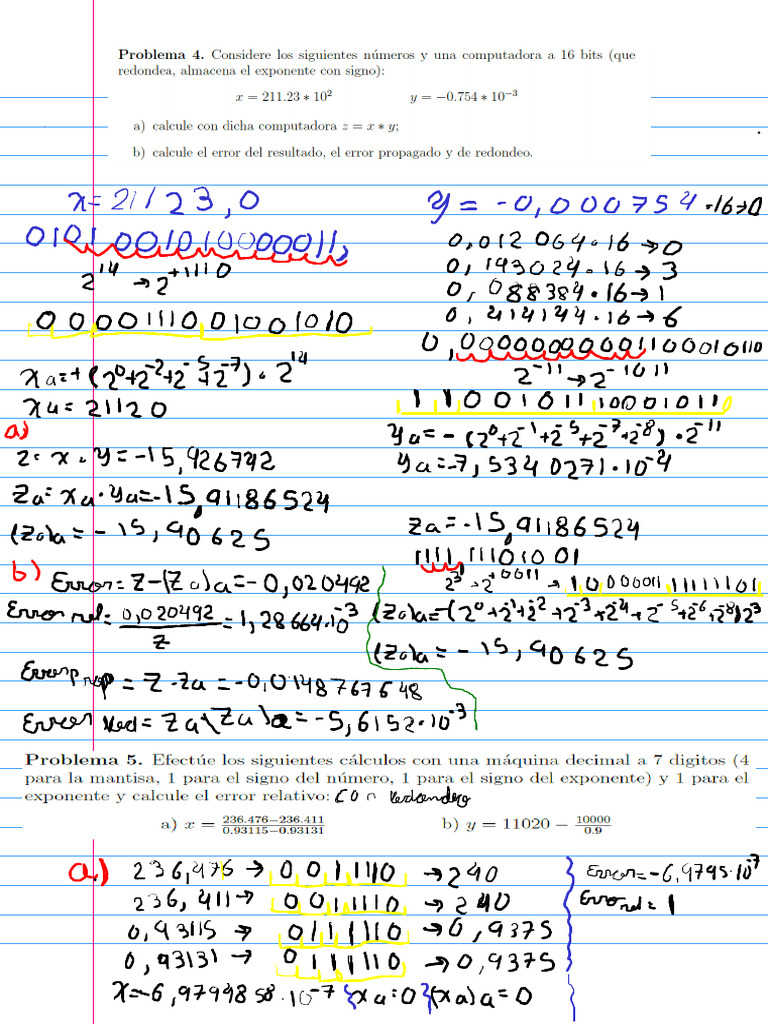 Problema 4. Considere los siguientes números y una computadora a 16 bits (que
redondea, almacena el exponente con signo):
x = 211.23 ∗ 10² y = −0.754 ∗ 10⁻³
a) calcule con dicha computadora z = x ∗ y;
b) calcule el error del resultado, el error propagado y de redondeo.
x=21123,0
0101001010000011,
2¹⁴ → 2⁺¹¹¹⁰
0 0 0001110 01001010
xa=+(2⁰+2⁻²+2⁻⁵+2⁻⁷)·2¹⁴
xa=21120
y = -0,000754·16→0
0,012064·16→0
0,193024·16→3
0,088384·16→1
0,414144·16→6
0,00000000001100010110
2⁻¹¹→2⁻¹⁰¹¹
1 1 001011 10001011
ya=-(2⁰+2⁻¹+2⁻⁵+2⁻⁷+2⁻⁸)·2⁻¹¹
ya=-7,5340271·10⁻⁴
a)
z=x·y=-15,926742
za=xa·ya=-15,91186524
(za)a=-15,90625
za=-15,91186524
1111,11101001
2³→2⁺⁰⁰¹¹→10000011 11111101
(za)a=-(2⁰+2⁻¹+2⁻²+2⁻³+2⁻⁴+2⁻⁵+2⁻⁶+2⁻⁸)2³
(za)a=-15,90625
b) Error=z-(za)a=-0,020492
Error rel=0,020492/z=1,28664·10⁻³
Error prop=z-za=-0,0148767648
Error red=za-(za)a=-5,6152·10⁻³
Problema 5. Efectúe los siguientes cálculos con una máquina decimal a 7 digitos (4
para la mantisa, 1 para el signo del número, 1 para el signo del exponente) y 1 para el
exponente y calcule el error relativo: con redondeo
a) x = 236.476−236.411/0.93115−0.93131 b) y = 11020 − 10000/0.9
a.) 236,476→0011110→240
236,411→0011110→240
0,93115→0111110→0,9375
0,93131→0111110→0,9375
x=-6,9794858·10⁻⁷ xa=0 (xa)a=0
Error=-6,9795·10⁻⁷
Error rel=1